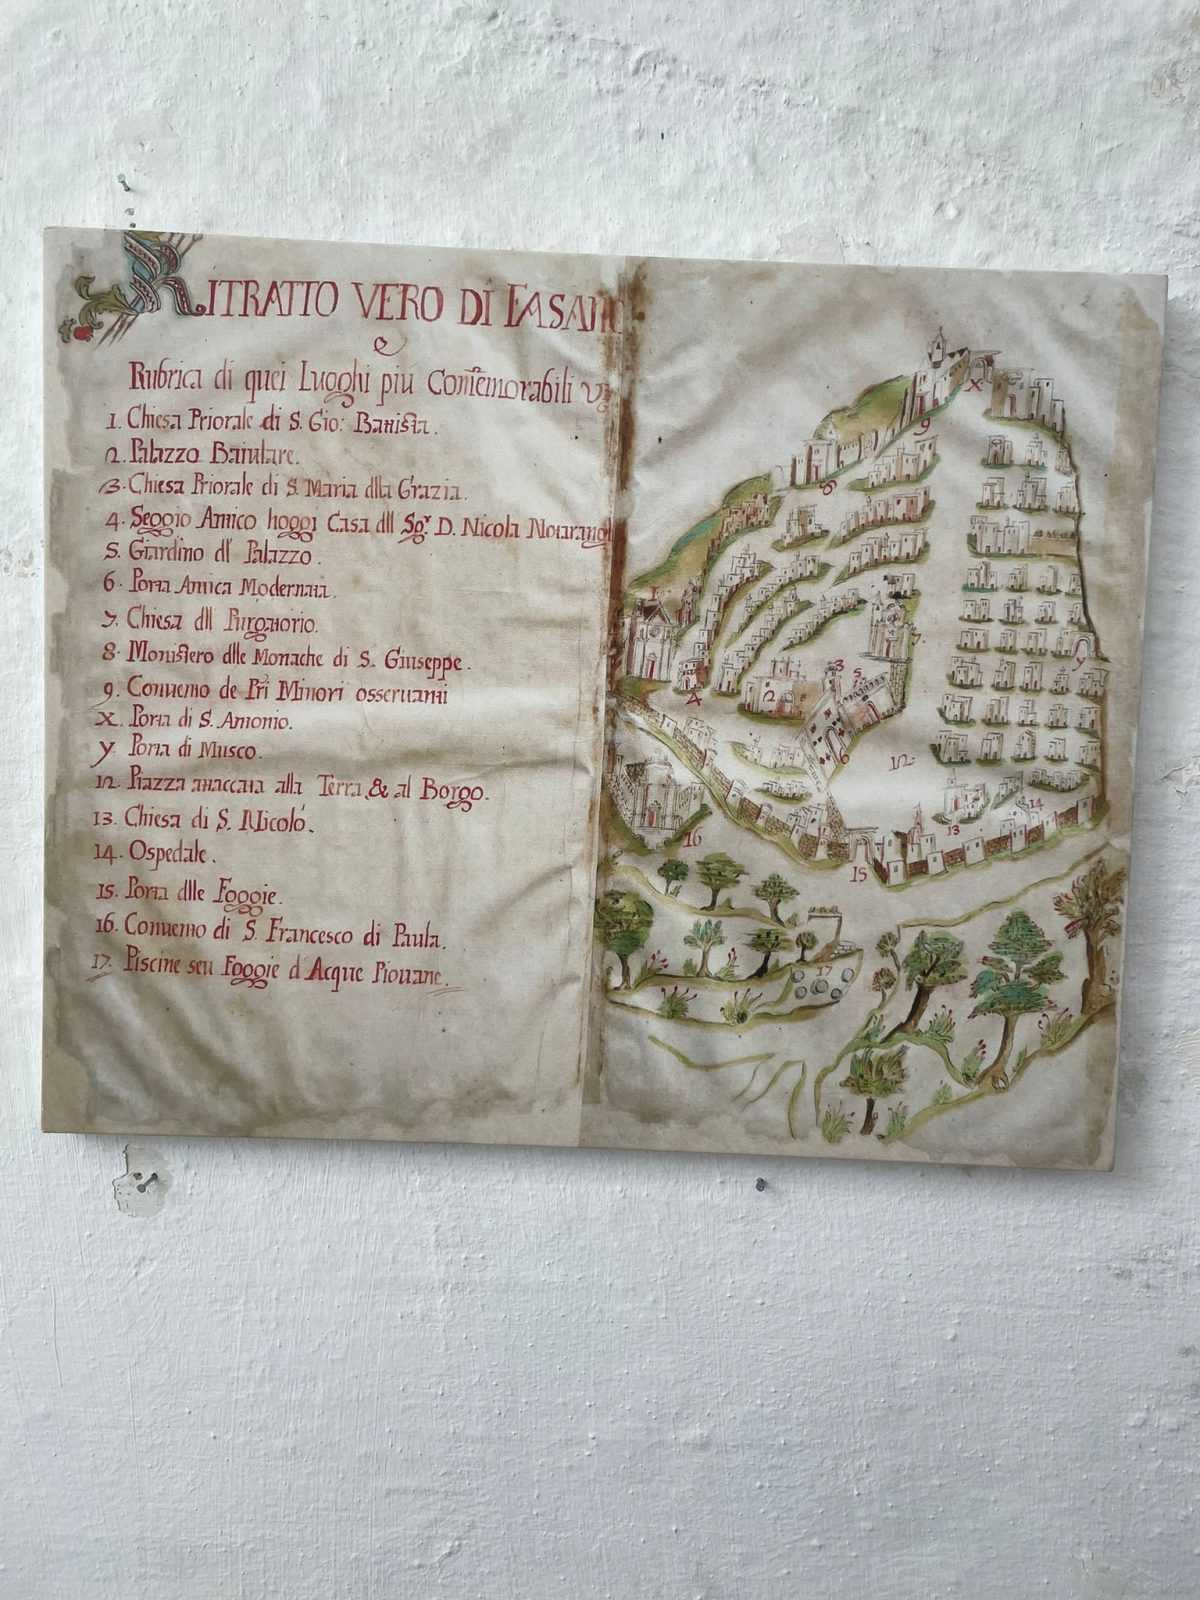 RITRATTO VERO DI FASAN
e
Rubrica di quei Luoghi più Commemorabili
1. Chiesa Priorale di S. Gio: Battista.
2. Palazzo Baiulare.
3. Chiesa Priorale di S. Maria dlla Grazia.
4. Seggio Antico hoggi Casa dll Sgr D. Nicola Notarang
5. Giardino dl Palazzo.
6. Porta Antica Modernata.
7. Chiesa dll Purgatorio.
8. Monistero dlle Monache di S. Giuseppe.
9. Convento de Pri Minori osservanti
X. Porta di S. Antonio.
Y Porta di Musco.
12. Piazza attaccata alla Terra, & al Borgo.
13. Chiesa di S. Nicolò.
14. Ospedale.
15. Porta dlle Foggie.
16. Convento di S. Francesco di Paula.
17. Piscine seu Foggie d'Acque Piovane.
X
9
8
Y
7.
3
5.
2
4
6
12.
14
13
16
15
17